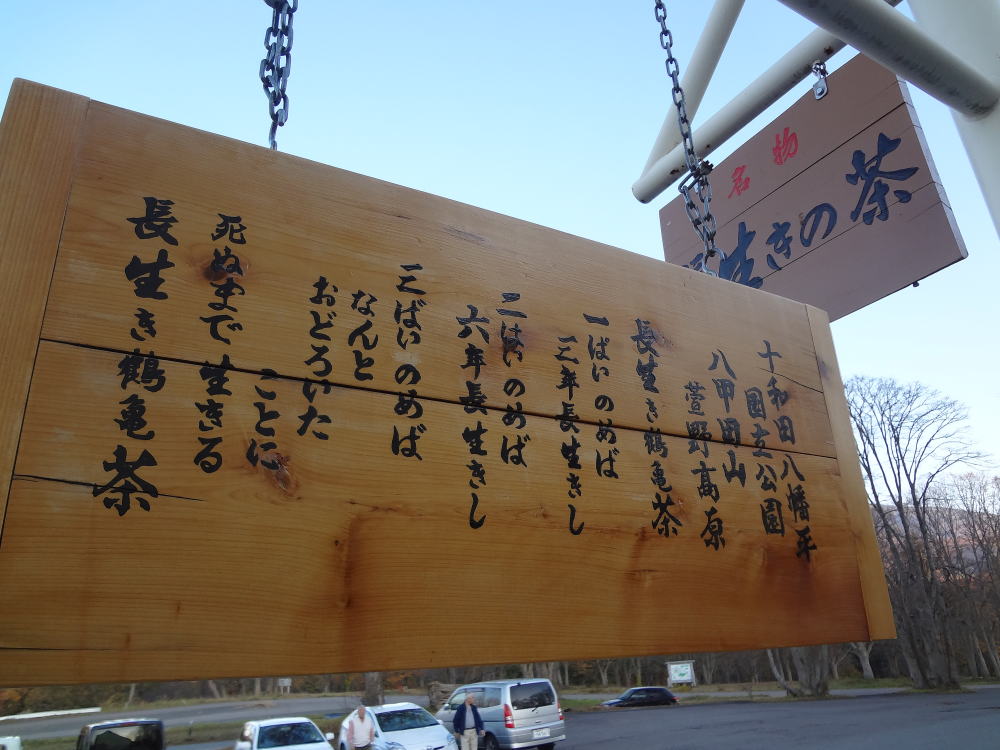 十和田八幡平
国立公園
八甲田山
萱野高原
長生き鶴亀茶
一ぱいのめば
三年長生きし
二はいのめば
六年長生きし
三ばいのめば
なんと
おどろいた
ことに
死ぬまで生きる
長生き鶴亀茶
名物
生きの茶